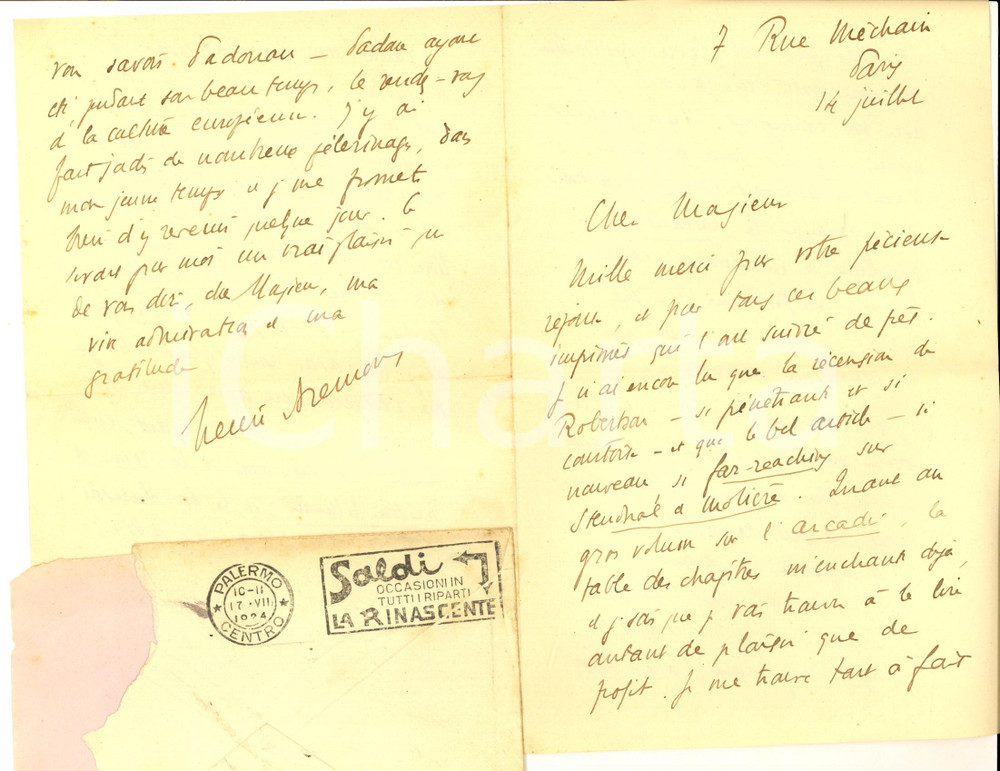 7 Rue Méchain
Paris
14 juillet
Cher Monsieur
Mille merci pour votre précieuse
réponse, et pour tous ces beaux
imprimés qui l'ont suivie de près.
Je n'ai encore lu que la récension de
Robertson – si pénétrant et si
courtois – et que le bel article – si
nouveau si far-reaching sur
Stendhal et Molière. Quant au
gros volume sur l'arcadie, la
table des chapitres m'enchante déjà,
et je sais que je vais trouver à le lire
autant de plaisir que de
profit. Je me trouve tout à fait
vous savois Padouan – Padoue ayant
été, pendant son beau temps, le rendez-vous
de la culture européenne. J'y ai
fait jadis de nombreux pélerinages, dans
mon jeune temps et je me promets
bien d'y revenir quelque jour. Ce
serait pour moi un vrai plaisir que
de vous dire, cher Monsieur, ma
vive admiration et ma
gratitude
Henri Bremond
PALERMO
10-11
17·VII
1924
CENTRO
Saldi
OCCASIONI IN
TUTTI I RIPARTI
LA RINASCENTE
iCharta